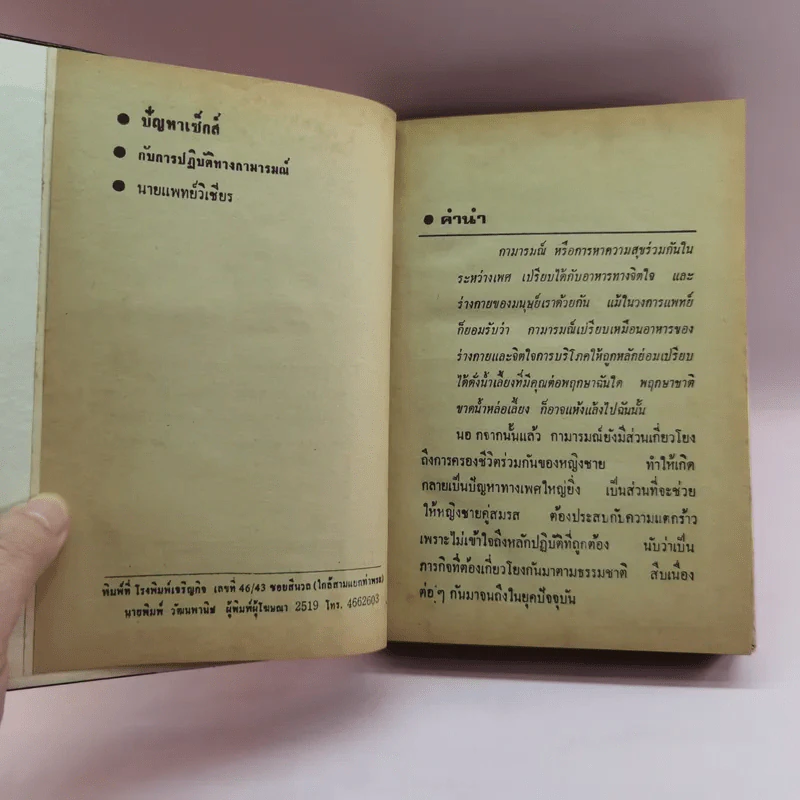 ● ปัญหาเซ็กส์
● กับการปฏิบัติทางกามารมณ์
● นายแพทย์วิเชียร
พิมพ์ที่ โรงพิมพ์เจริญกิจ เลขที่ 46/43 ซอยสีนวล (ใกล้สามแยกท่าพระ)
นายพิมพ์ วัฒนพานิช ผู้พิมพ์ผู้โฆษณา 2519 โทร. 4662603
● คำนำ
กามารมณ์ หรือการหาความสุขร่วมกันใน
ระหว่างเพศ เปรียบได้กับอาหารทางจิตใจ และ
ร่างกายของมนุษย์เราด้วยกัน แม้ในวงการแพทย์
ก็ยอมรับว่า กามารมณ์เปรียบเหมือนอาหารของ
ร่างกายและจิตใจการบริโภคให้ถูกหลักย่อมเปรียบ
ได้ดั่งน้ำเลี้ยงที่มีคุณต่อพฤกษาฉันใด พฤกษาชาติ
ขาดน้ำหล่อเลี้ยง ก็อาจแห้งแล้งไปฉันนั้น
นอ กจากนั้นแล้ว กามารมณ์ยังมีส่วนเกี่ยวโยง
ถึงการครองชีวิตร่วมกันของหญิงชาย ทำให้เกิด
กลายเป็นปัญหาทางเพศใหญ่ยิ่ง เป็นส่วนที่จะช่วย
ให้หญิงชายคู่สมรส ต้องประสบกับความแตกร้าว
เพราะไม่เข้าใจถึงหลักปฏิบัติที่ถูกต้อง นับว่าเป็น
ภารกิจที่ต้องเกี่ยวโยงกันมาตามธรรมชาติ สืบเนื่อง
ต่อๆ กันมาจนถึงในยุคปัจจุบัน